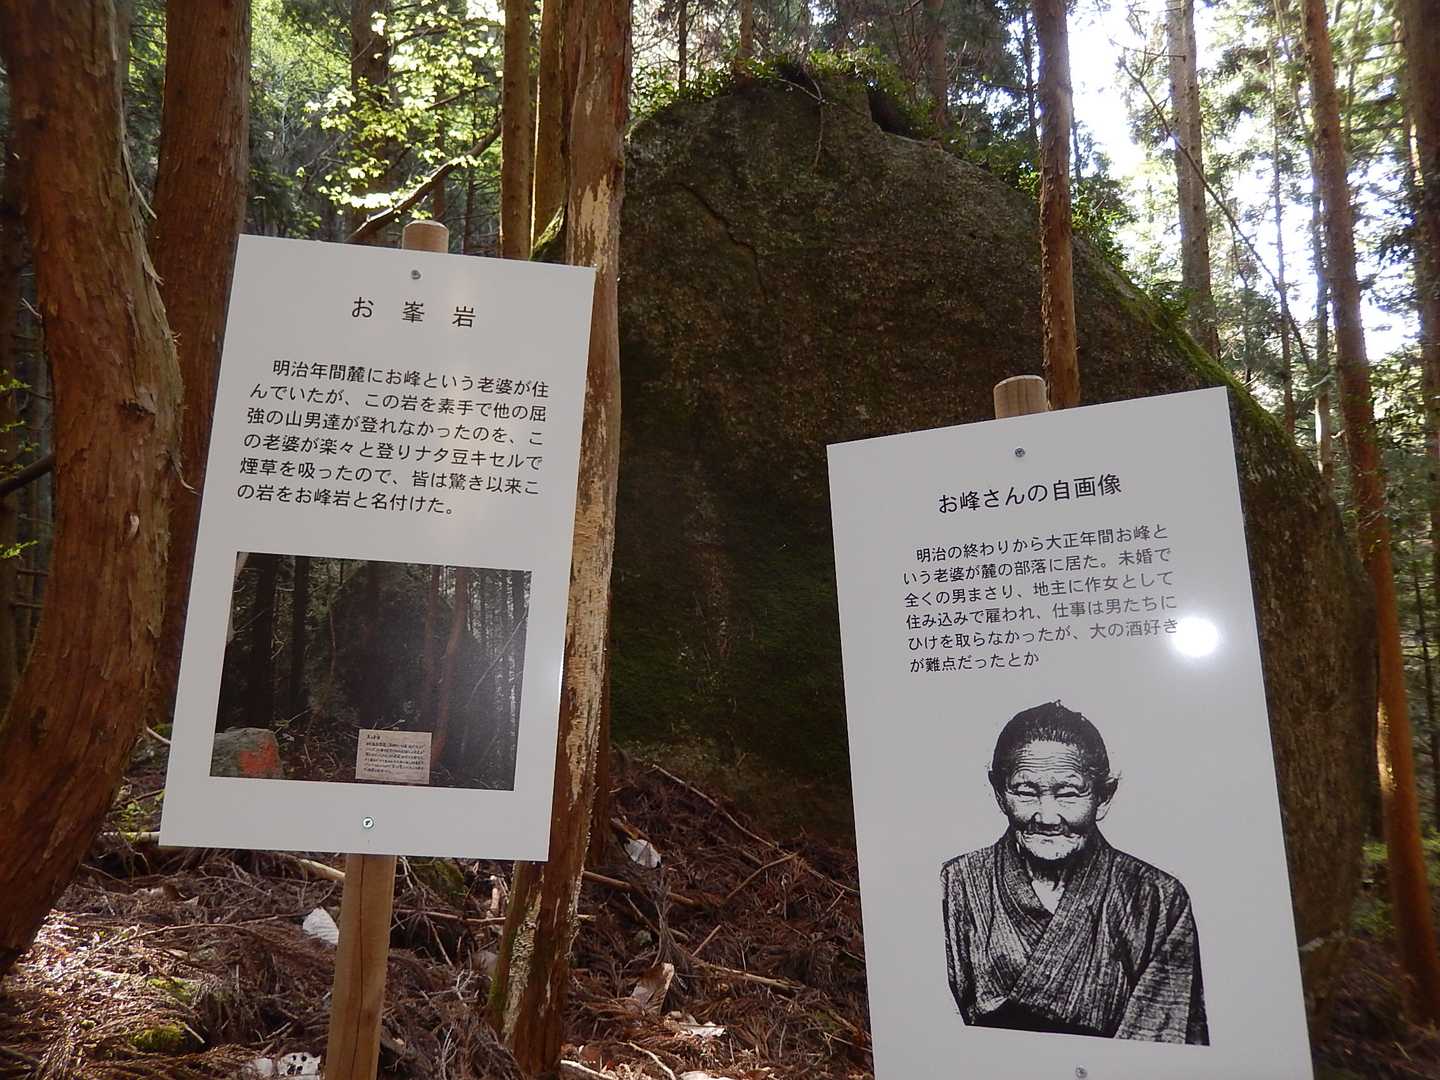 お峯岩
明治年間麓にお峰という老婆が住
んでいたが、この岩を素手で他の屈
強の山男達が登れなかったのを、こ
の老婆が楽々と登りナタ豆キセルで
煙草を吸ったので、皆は驚き以来こ
の岩をお峰岩と名付けた。
お峰さんの自画像
明治の終わりから大正年間お峰と
いう老婆が麓の部落に居た。未婚で
全くの男まさり、地主に作女として
住み込みで雇われ、仕事は男たちに
ひけを取らなかったが、大の酒好き
が難点だったとか